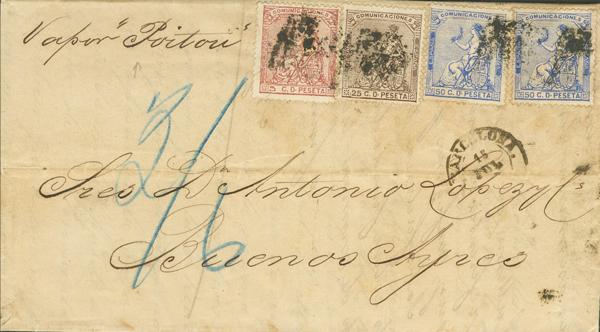 Vapor "Poitou"
COMUNICACIONES COMUNICACIONES COMUNICACIONES COMUNICACIONES
5 C. D. PESETA 25 C. D. PESETA 50 C. D. PESETA 50 C. D. PESETA
BARCELONA.
15
JUL
Sres Dn Antonio Lopez y Cª
Buenos Ayres